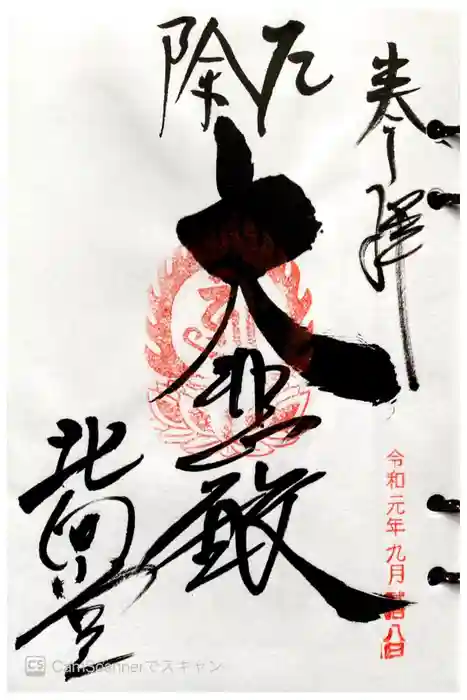 奉拝
令和元年九月八日
厄除
大悲殿
北向堂
CS CamScannerでスキャン